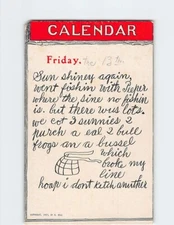 CALENDAR
Friday, the 13th
Sun shiney again,
went fishin with Peeper
where the sine no fishin
is. but there wus lots.
we cot 3 sunnies 2
purch a eal 2 bull
frogs an a bussel
which
broke my
line
hoap i dont katch anuther